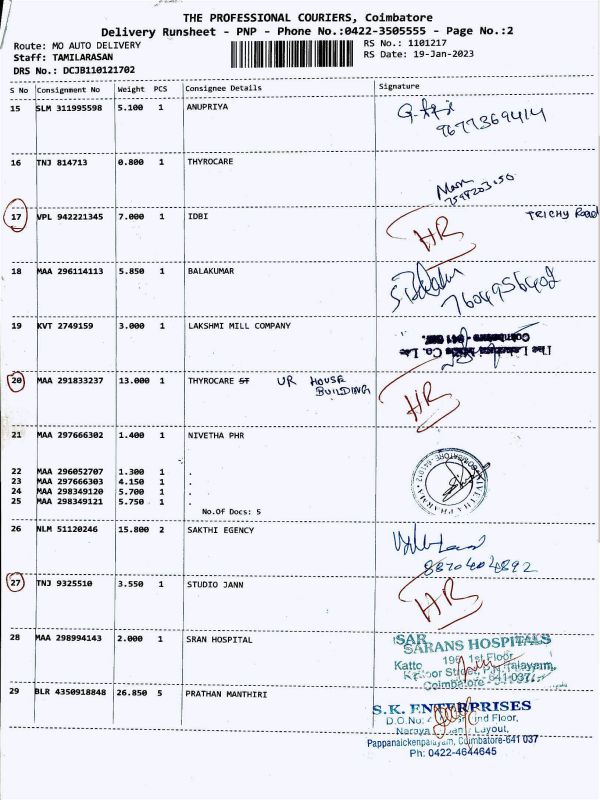 THE PROFESSIONAL COURIERS, Coimbatore
Delivery Runsheet - PNP - Phone No.:0422-3505555 - Page No.:2
Route: MO AUTO DELIVERY
RS No.: 1101217
Staff: TAMILARASAN
RS Date: 19-Jan-2023
DRS No.: DCJB110121702
S No Consignment No Weight PCS Consignee Details Signature
15 SLM 311995598 5.100 1 ANUPRIYA
9677369414
16 TNJ 814713 0.800 1 THYROCARE
17 VPL 942221345 7.000 1 IDBI TRICHY Road
HR
18 MAA 296114113 5.850 1 BALAKUMAR
7604956402
19 KVT 2749159 3.000 1 LAKSHMI MILL COMPANY
Coimbatore - 641 037.
The Lakshmi Mills Co. Ltd
20 MAA 291833237 13.000 1 THYROCARE ST UR HOUSE
BUILDING
HR
21 MAA 297666302 1.400 1 NIVETHA PHR
22 MAA 296052707 1.300 1 .
23 MAA 297666303 4.150 1 .
24 MAA 298349120 5.700 1 .
25 MAA 298349121 5.750 1 .
No.Of Docs: 5
NIVETHA PHARMA
COIMBATORE-641 012
26 NLM 51120246 15.800 2 SAKTHI EGENCY
8870404892
27 TNJ 9325510 3.550 1 STUDIO JANN
HR
28 MAA 298994143 2.000 1 SRAN HOSPITAL
SAR
SARANS HOSPITALS
196, 1st Floor,
Katto
Coimbatore - 641 037.
29 BLR 4350918848 26.850 5 PRATHAN MANTHIRI
S.K. ENTERPRISES
D.O.No: Floor,
Layout,
Pappanaickenpalayam, Coimbatore-641 037
Ph: 0422-4644645